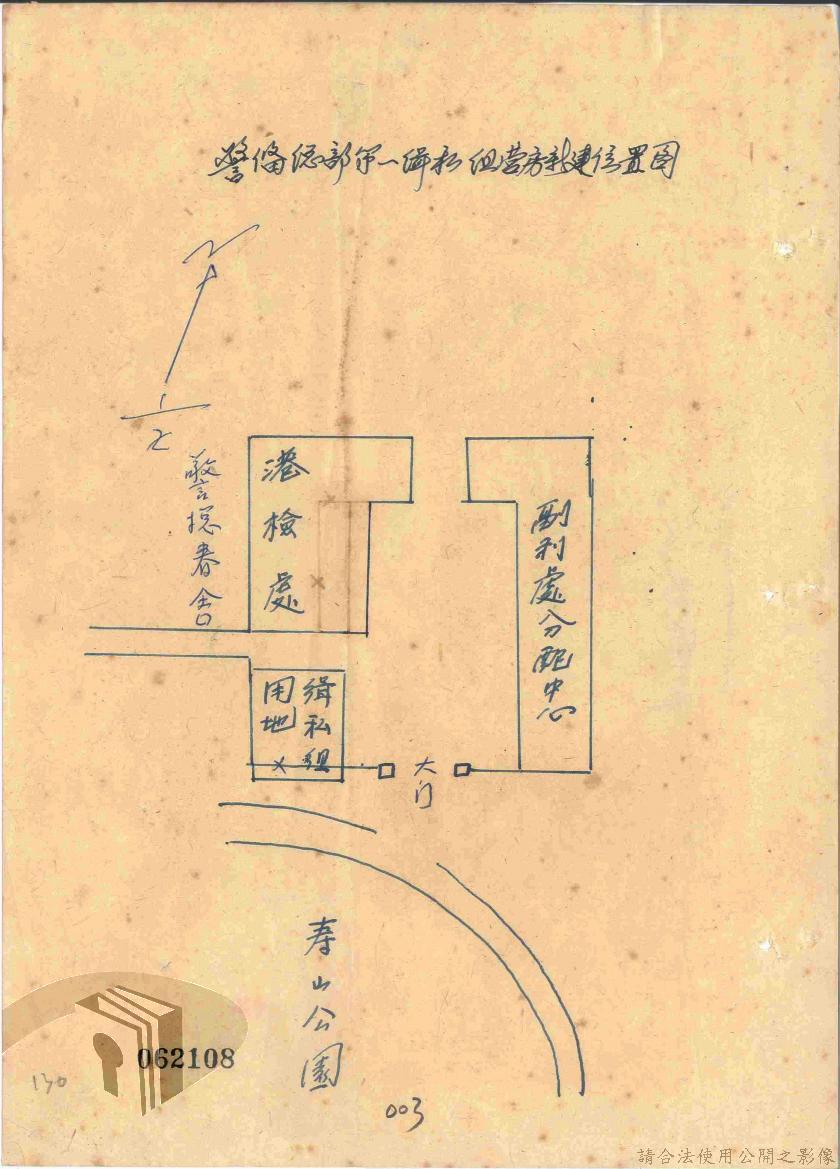 警备总部第一缉私组营房新建位置图
北
警總眷舍
港檢處
副利處分配中心
緝私組
用地
大门
寿山公園
062108
130
003
請合法使用公開之影像